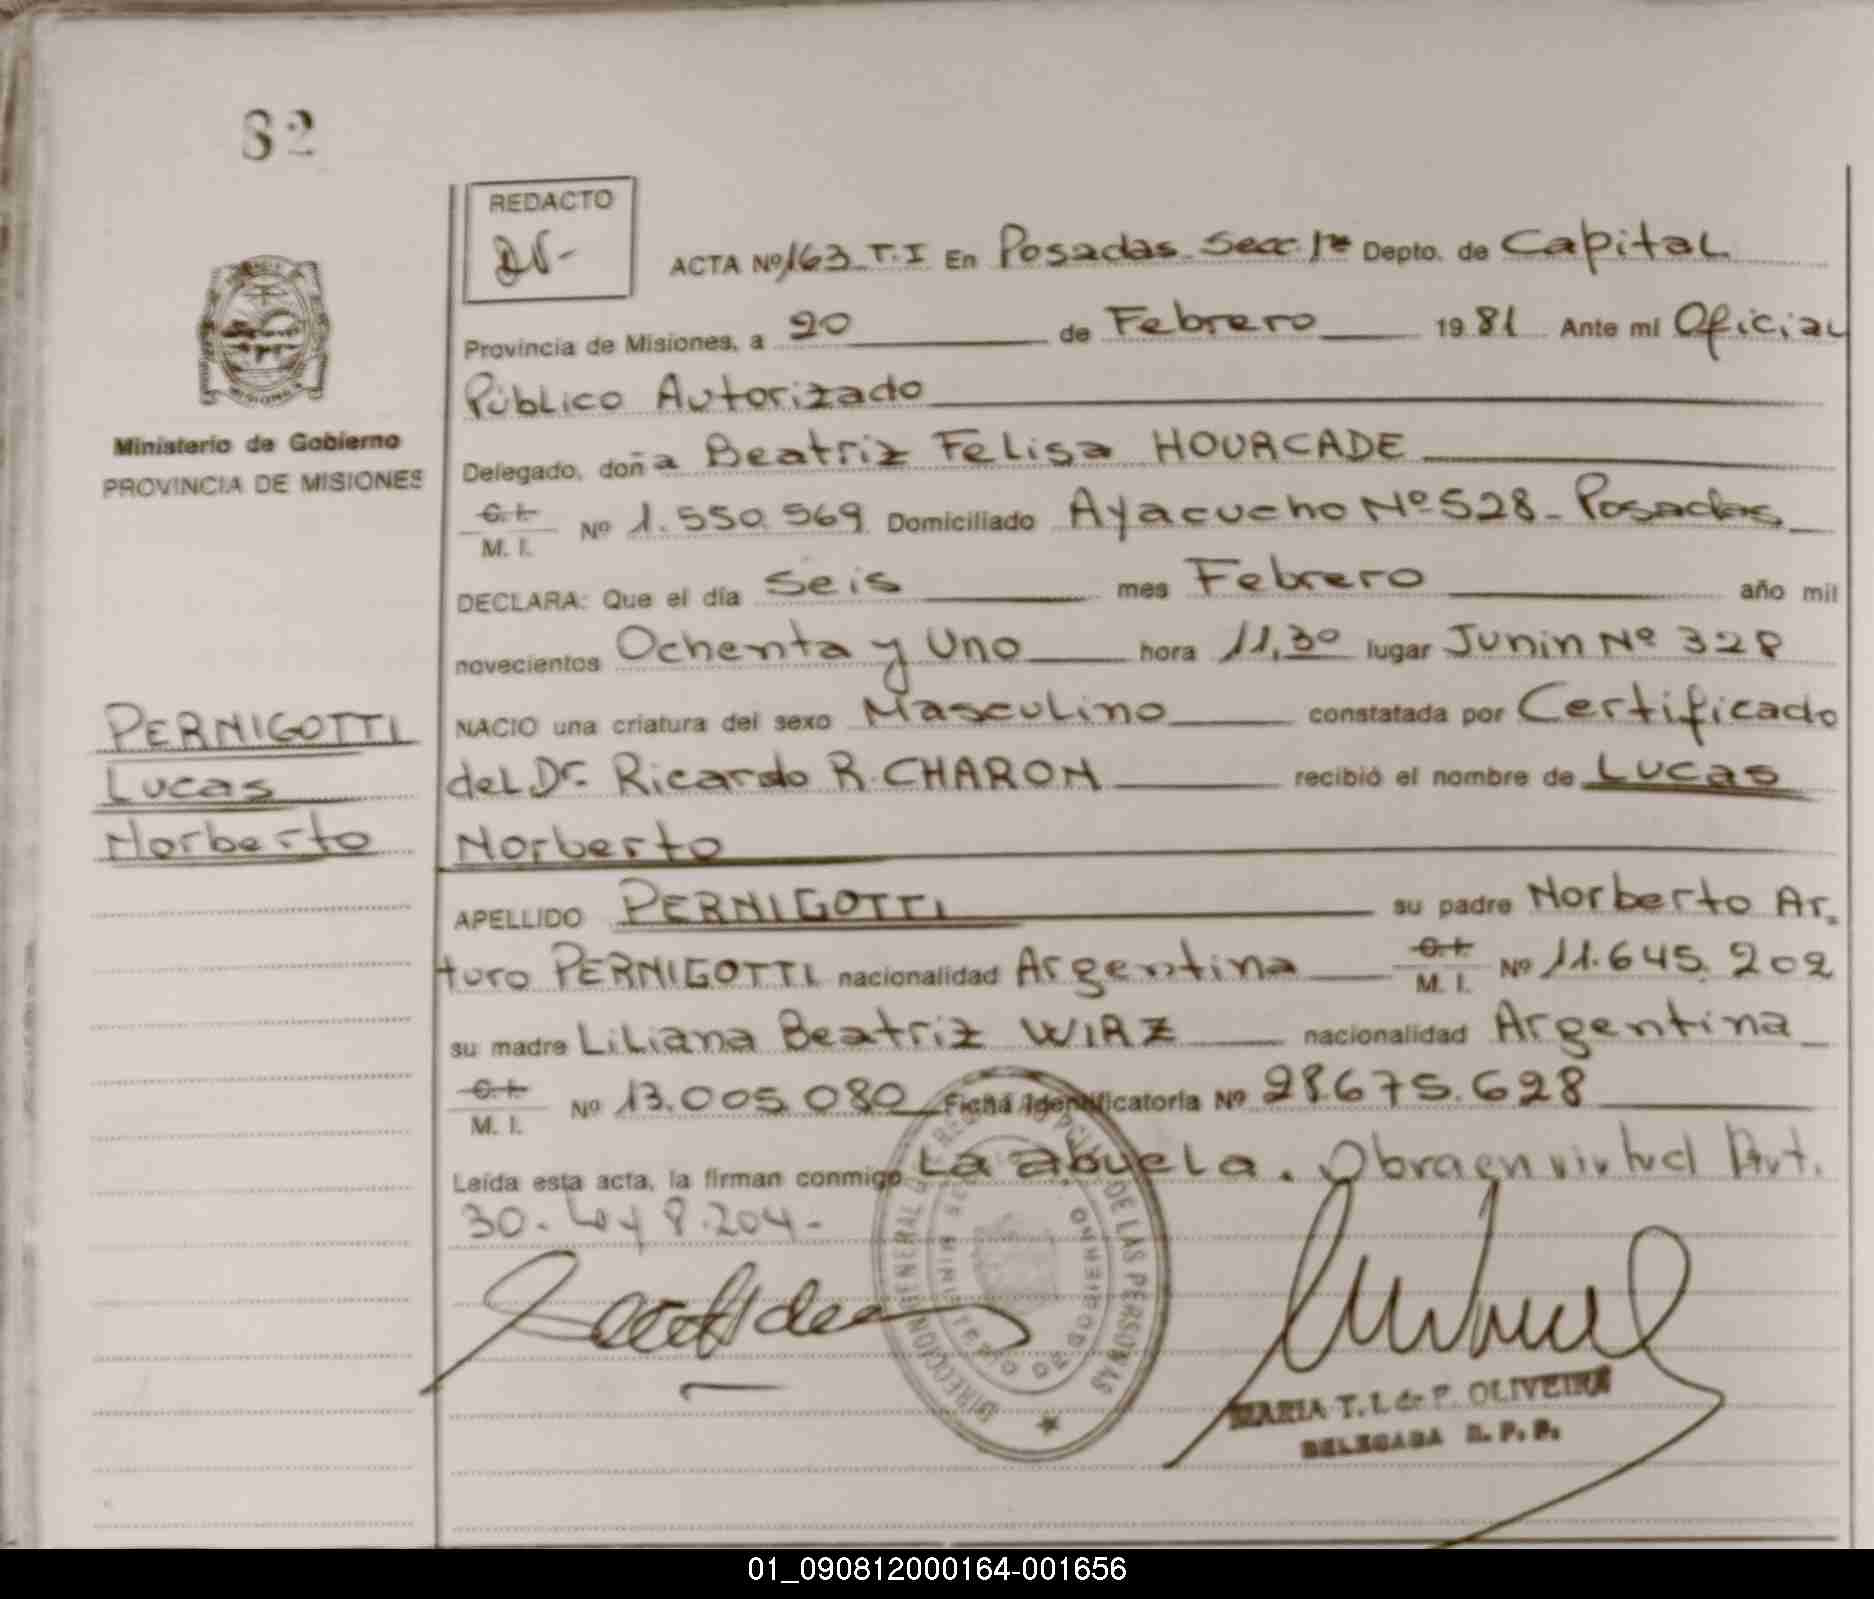 82
REDACTO
ACTA Nº 163 T.I En Posadas Secc. 1ª Depto. de Capital
Provincia de Misiones, a 20 de Febrero 1981 Ante mi Oficial
Público Autorizado
Ministerio de Gobierno
PROVINCIA DE MISIONES
Delegado, doña Beatriz Felisa HOURCADE
C.I.
M. I. Nº 1.550.569 Domiciliado Ayacucho Nº 528 - Posadas
DECLARA: Que el día Seis mes Febrero año mil
novecientos Ochenta y Uno hora 11,30 lugar Junin Nº 328
NACIO una criatura del sexo Masculino constatada por Certificado
del Dr. Ricardo R. CHARON recibió el nombre de Lucas
Norberto
PERNIGOTTI
Lucas
Norberto
APELLIDO PERNIGOTTI su padre Norberto Ar-
turo PERNIGOTTI nacionalidad Argentina C.I. M. I. Nº 11.645.202
su madre Liliana Beatriz WIRZ nacionalidad Argentina
C.I.
M. I. Nº 13.005.080 Ficha Identificatoria Nº 28.675.628
Leída esta acta, la firman conmigo La abuela. Obra en virtud Art.
30. Ley 8.204.-
DIRECCION GENERAL DE REG. DE LAS PERSONAS
MINISTERIO GOBIERNO
MARIA T. I. de P. OLIVEIRA
DELEGADA R. P. P.
01_090812000164-001656